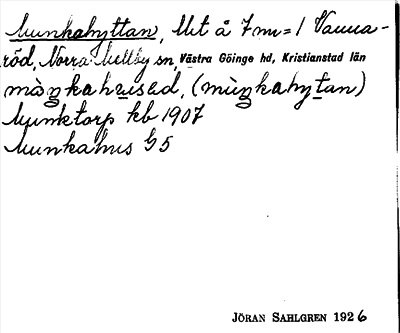 Munkahyttan, Mst å 7 m=1 Vanna-
röd, Norra Mellby sn, Västra Göinge hd, Kristianstad län
màŋkahʉsəd, (mùŋkahytan)
Munktorp kb 1907
Munkahus G5
JÖRAN SAHLGREN 1926